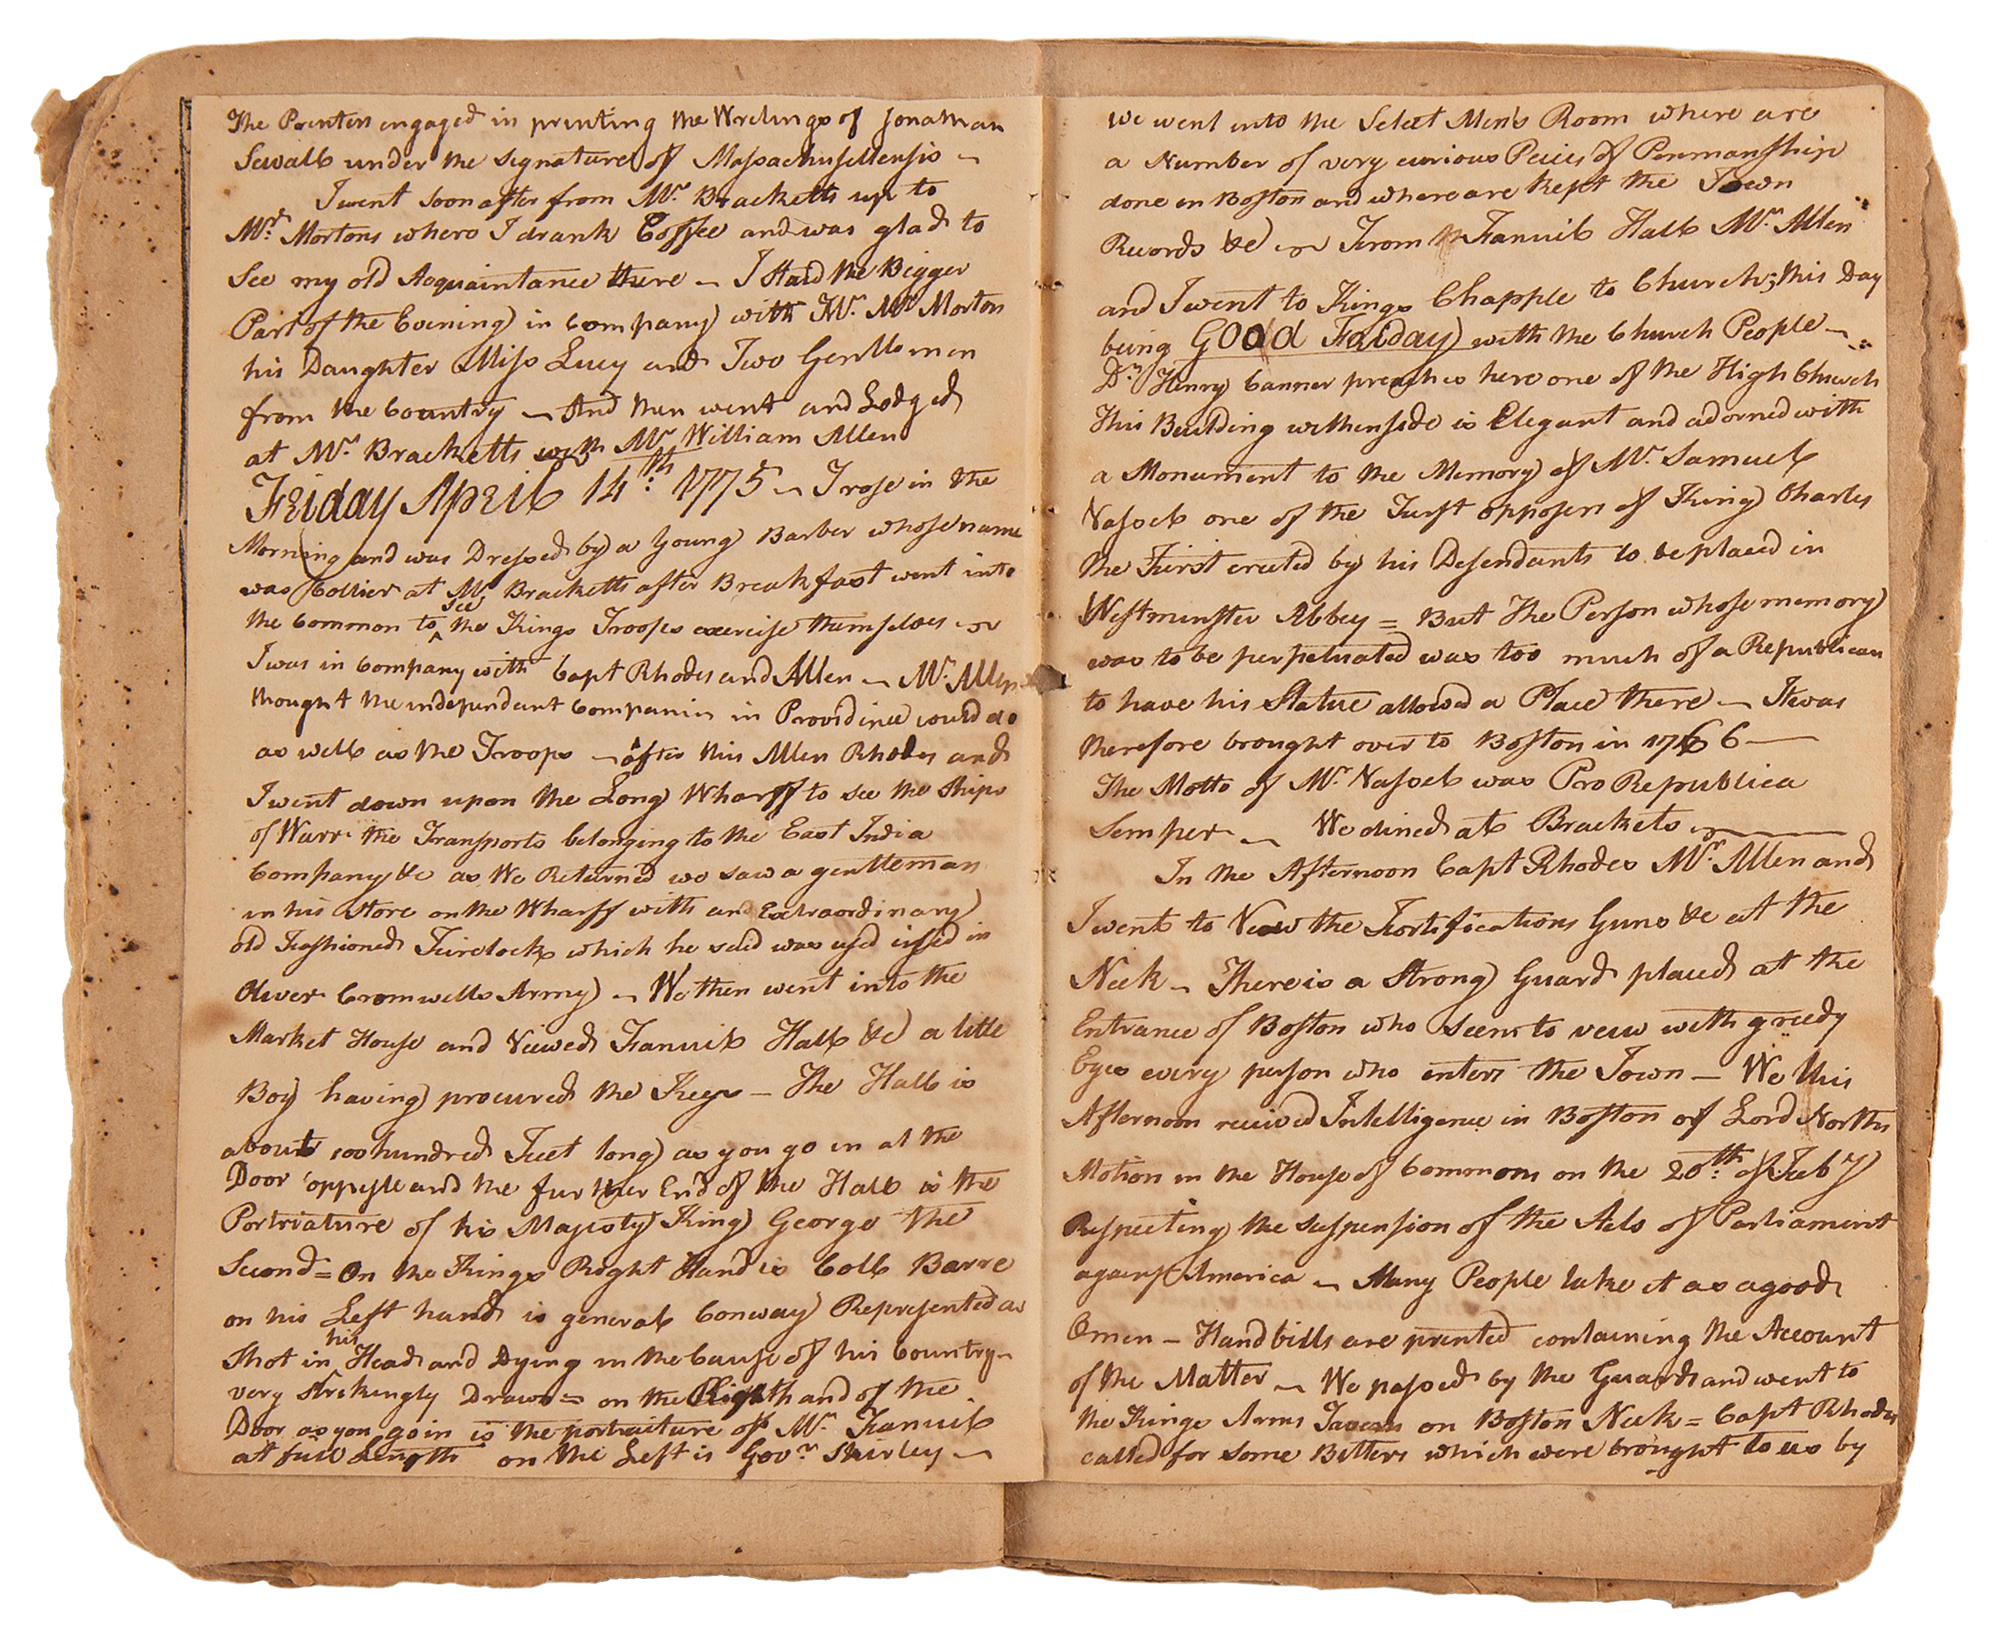 The Printers engaged in printing the Writings of Jonathan
Sewall under the signature of Massachusettensis —
I went soon after from Mr. Bracketts up to
Mrs. Mortons where I drank Coffee and was glad to
See my old Acquaintance there — I Staid the Bigger
Part of the Evening in Company with Mr. Morton
his Daughter Miss Lucy and Two Gentlemen
from the Country — And then went and Lodged
at Mr. Bracketts with Mr. William Allen
Friday April 14th: 1775 — I rose in the
Morning and was Dressed by a Young Barber whose name
was Collier at Mr. Bracketts after Breakfast went into
the Common to see the Kings Troops exercise themselves —
I was in Company with Capt Rhodes and Allen — Mr. Allen
thought the independant Companies in Providence could do
as well as the Troops — after this Allen Rhodes and
I went down upon the Long Wharff to see the Ships
of Warr the Transports belonging to the East India
Company &c as We Returned we saw a gentleman
in his Store on the Wharff with an Extraordinary
old Fashioned Firelock which he said was used in
Oliver Cromwells Army — We then went into the
Market House and Viewed Fanuil Hall &c a little
Boy having procured the Keys — The Hall is
about 100 hundred Feet long as you go in at the
Door oppisite and the further End of the Hall is the
Portriature of his Majesty King George the
Second = On the Kings Right Hand is Coll Barre
on his Left hand is general Conway Represented as
Shot in his Head and Dying in the Cause of his Country —
very Strikingly Drawn = on the Right hand of the
Door as you go in is the portraiture of Mr. Fanuil
at full Length on the Left is Govr. Shirley —
We went into the Select Mens Room where are
a Number of very curious Peices of Penmanship
done in Boston and where are kept the Town
Records &c — From Fanuil Hall Mr. Allen
and I went to Kings Chapple to Church; this Day
being GOOd Friday with the Church People —
Dr. Henry Canner preaches here one of the High Church
This Building withinside is Elegant and adorned with
a Monument to the Memory of Mr. Samuel
Vassel one of the Furst opposers of King Charles
the First erected by his Desendants to be placed in
Westminster Abbey = But The Person whose memory
was to be perpetuated was too much of a Republican
to have his Statue allowed a Place there — It was
therefore brought over to Boston in 1766 —
The Motto of Mr. Vassel was Pro Republica
Semper — We dined at Brackets —
In the Afternoon Capt Rhodes Mr. Allen and
I went to View the Fortifications Guns &c at the
Neck — There is a Strong Guard placed at the
Entrance of Boston who seem to veiw with greedy
Eyes every person who enters the Town — We this
Afternoon received Intelligence in Boston of Lord Norths
Motion in the House of Commons on the 20th: of Feby
Respecting the suspension of the Acts of Parliament
against America — Many People take it as a good
Omen — Hand bills are printed containing the Account
of the Matter — We passed by the Guards and went to
the Kings Arms Tavern on Boston Neck = Capt Rhodes
called for some Bitters which were brought to us by